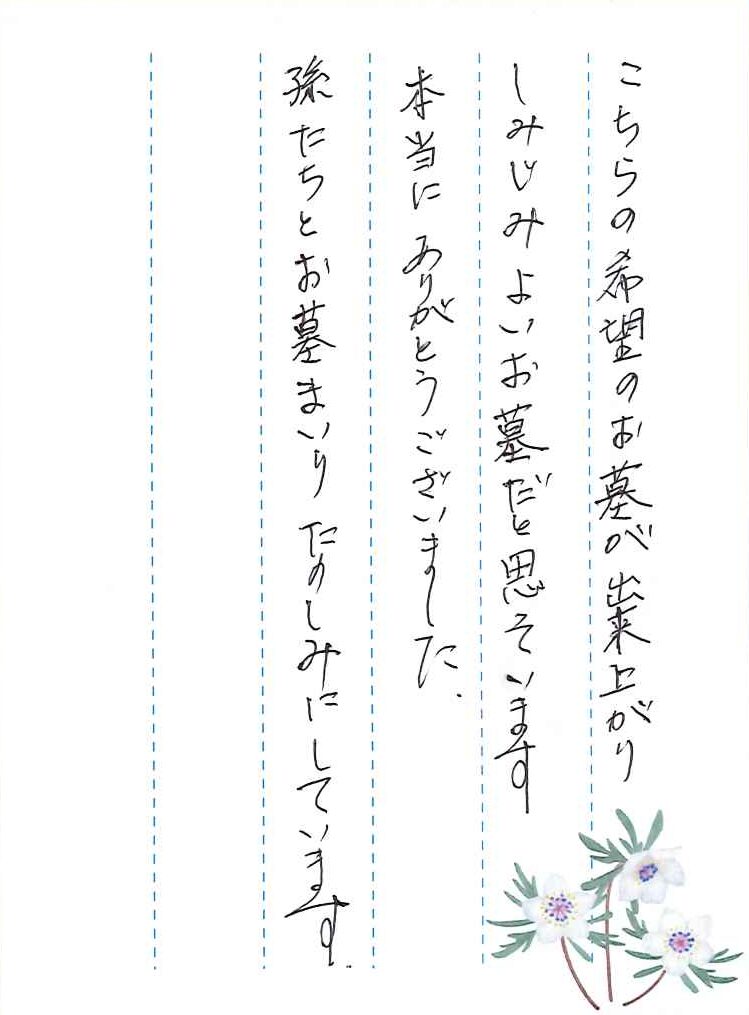 こちらの希望のお墓が出来上がり
しみじみよいお墓だと思っています
本当にありがとうございました.
孫たちとお墓まいりたのしみにしています.